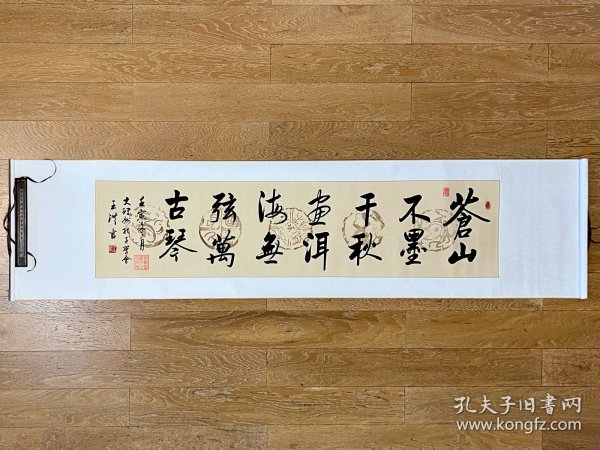 蒼山
不墨
千秋
画洱
海無
弦萬
古琴
壬寅
孔夫子旧书网
www.kongfz.com